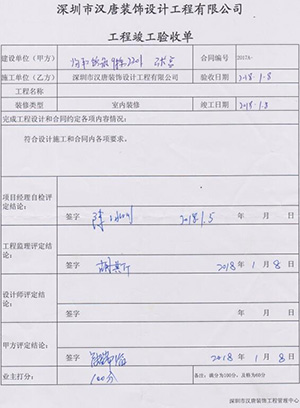 深圳市汉唐装饰设计工程有限公司
工程竣工验收单
建设单位（甲方） 合同编号 2017A-
施工单位（乙方） 深圳市汉唐装饰设计工程有限公司 验收日期 2018.1.8
工程名称
装修类型 室内装修 竣工日期 2018.1.8
完成工程设计和合约约定各项内容情况：
符合设计施工和合同内各项要求。
项目经理自检评定结论：
签字 2018.1.5 年 月 日
工程监理评定结论：
签字 2018 年 1 月 8 日
设计师评定结论：
签字 年 月 日
甲方评定结论：
签字 2018 年 1 月 8 日
业主打分： 100分 备注：满分为100分，及格为60分
深圳市汉唐装饰工程管理中心